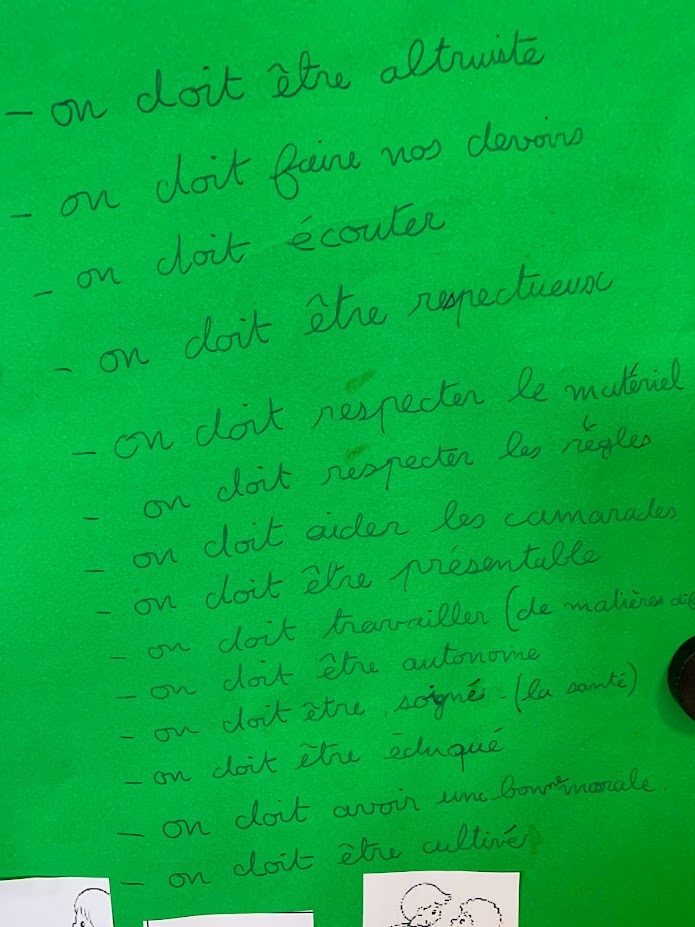 - on doit être altruiste
- on doit faire nos devoirs
- on doit écouter
- on doit être respectueux
- on doit respecter le matériel
- on doit respecter les règles
- on doit aider les camarades
- on doit être présentable
- on doit travailler (de matières
- on doit être autonome
- on doit être soigné (la santé)
- on doit être éduqué
- on doit avoir une bonne morale
- on doit être cultivé